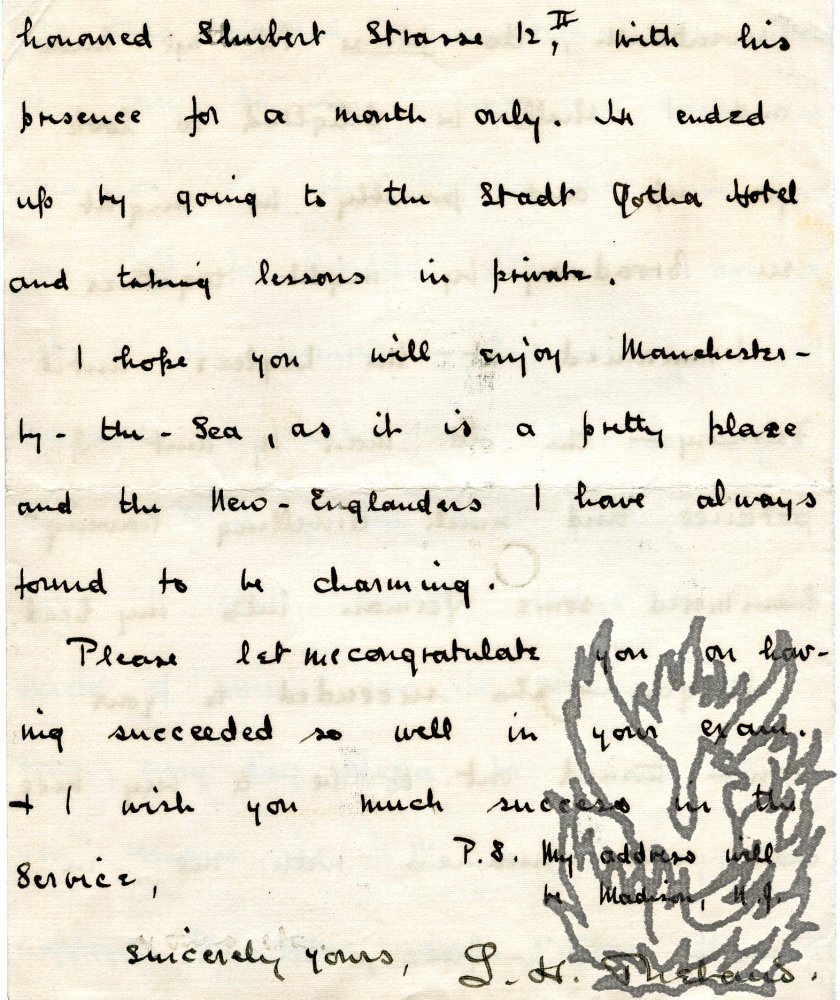 honoured Shubert Strasse 12,II with his
presence for a month only. He ended
up by going to the Stadt Gotha Hotel
and taking lessons in private.
I hope you will enjoy Manchester-
by-the-Sea, as it is a pretty place
and the New-Englanders I have always
found to be charming.
Please let me congratulate you on hav-
ing succeeded so well in your exam.
+ I wish you much success in the
Service,
P.S. My address will
be Madison, N.J.
Sincerely yours, L. H.